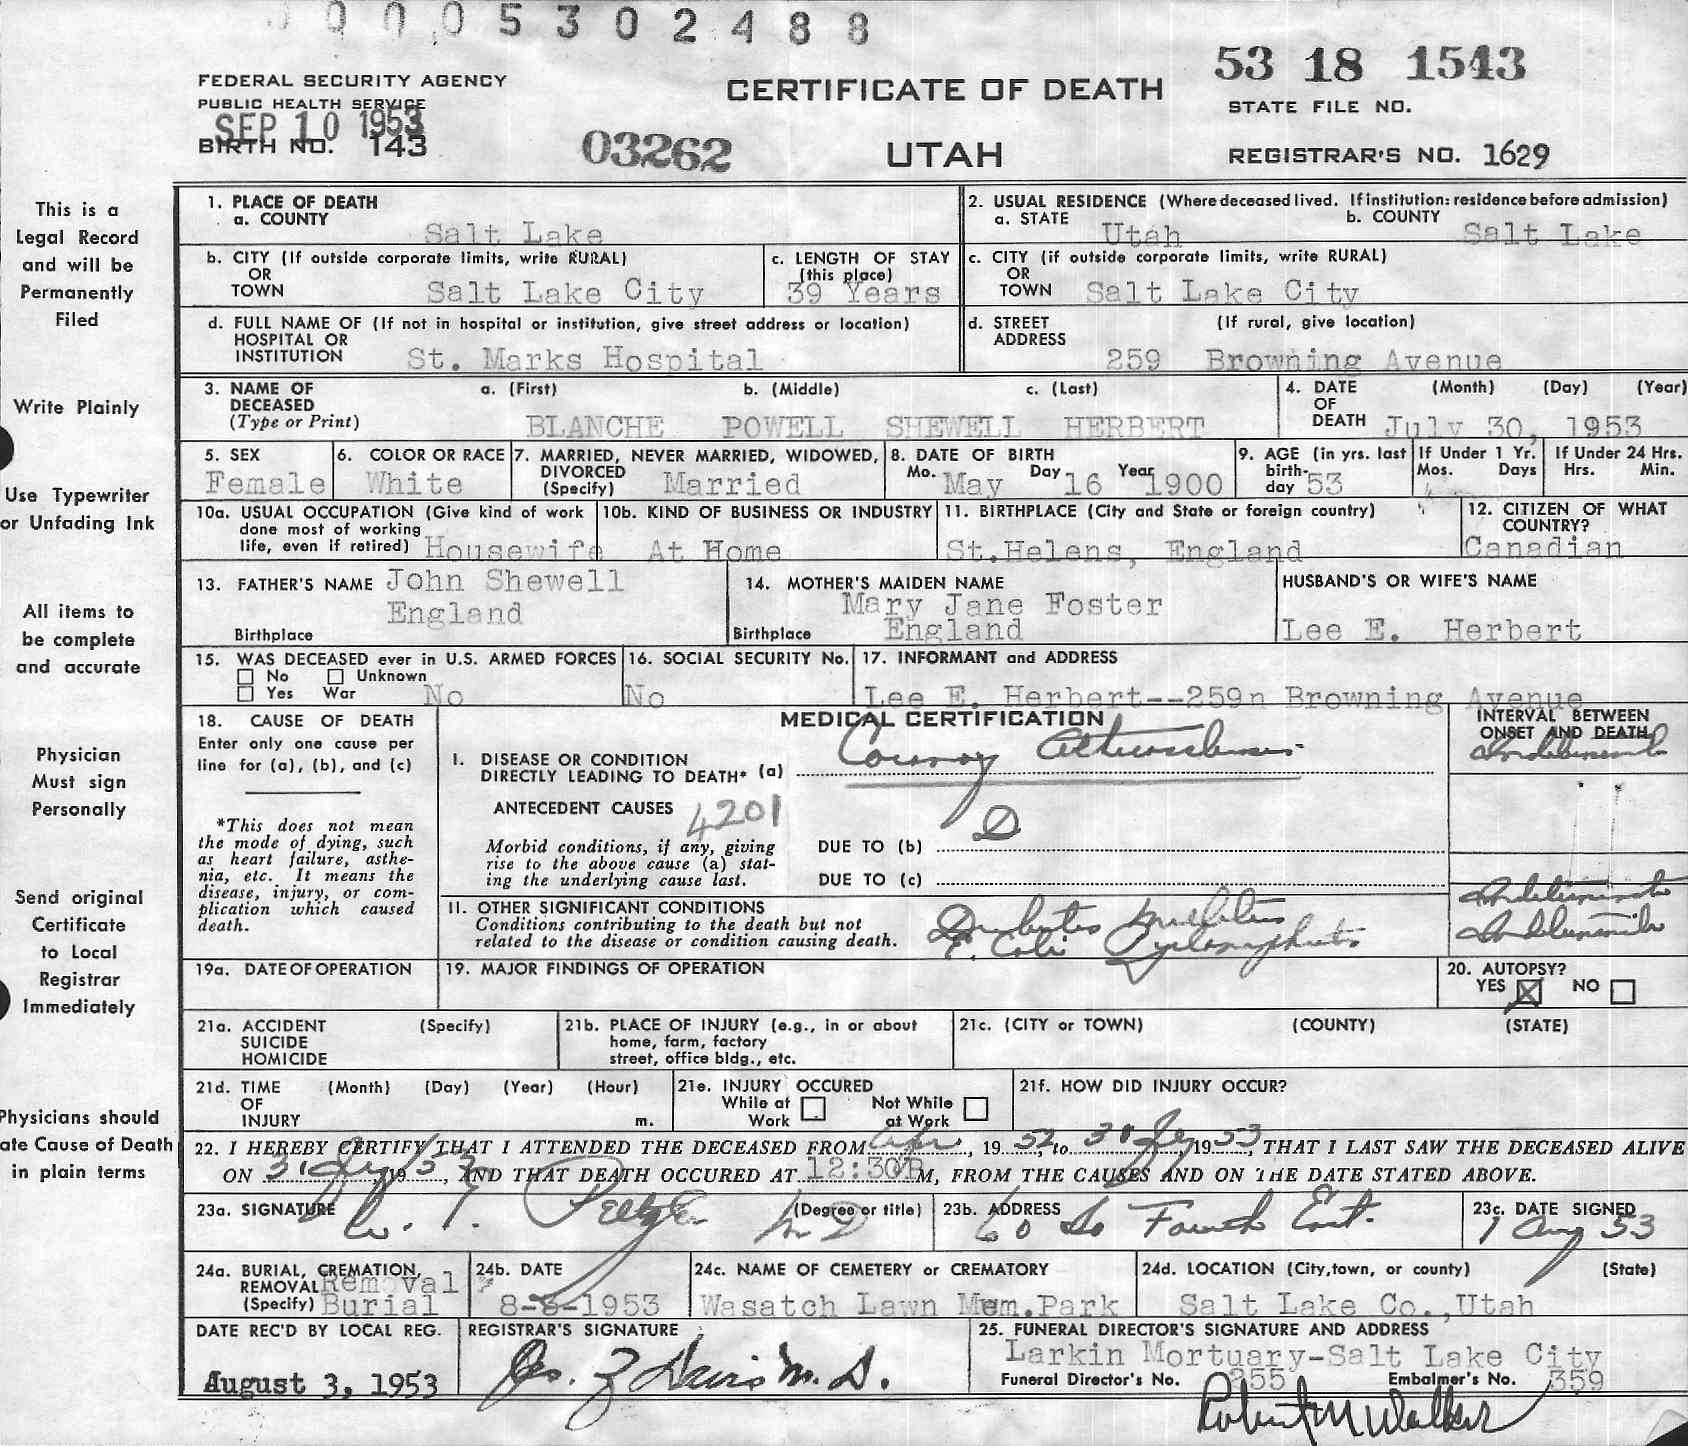 0 0 0 0 5 3 0 2 4 8 8
FEDERAL SECURITY AGENCY
PUBLIC HEALTH SERVICE
SEP 10 1953
BIRTH NO. 143
03262
CERTIFICATE OF DEATH
UTAH
53 18 1543
STATE FILE NO.
REGISTRAR'S NO. 1629
This is a
Legal Record
and will be
Permanently
Filed
Write Plainly
Use Typewriter
or Unfading Ink
All items to
be complete
and accurate
Physician
Must sign
Personally
Send original
Certificate
to Local
Registrar
Immediately
Physicians should
ate Cause of Death
in plain terms
1. PLACE OF DEATH
a. COUNTY
Salt Lake
2. USUAL RESIDENCE (Where deceased lived. If institution: residence before admission)
a. STATE Utah b. COUNTY Salt Lake
b. CITY (If outside corporate limits, write RURAL)
OR
TOWN Salt Lake City
c. LENGTH OF STAY
(this place)
39 Years
c. CITY (if outside corporate limits, write RURAL)
OR
TOWN Salt Lake City
d. FULL NAME OF (If not in hospital or institution, give street address or location)
HOSPITAL OR
INSTITUTION St. Marks Hospital
d. STREET (If rural, give location)
ADDRESS
259 Browning Avenue
3. NAME OF a. (First) b. (Middle) c. (Last)
DECEASED
(Type or Print) BLANCHE POWELL SHEWELL HERBERT
4. DATE (Month) (Day) (Year)
OF
DEATH July 30, 1953
5. SEX
Female
6. COLOR OR RACE
White
7. MARRIED, NEVER MARRIED, WIDOWED,
DIVORCED
(Specify) Married
8. DATE OF BIRTH
Mo. May Day 16 Year 1900
9. AGE (in yrs. last
birth-
day 53
If Under 1 Yr.
Mos. Days
If Under 24 Hrs.
Hrs. Min.
10a. USUAL OCCUPATION (Give kind of work
done most of working
life, even if retired) Housewife
10b. KIND OF BUSINESS OR INDUSTRY
At Home
11. BIRTHPLACE (City and State or foreign country)
St.Helens, England
12. CITIZEN OF WHAT
COUNTRY?
Canadian
13. FATHER'S NAME John Shewell
England
Birthplace
14. MOTHER'S MAIDEN NAME
Mary Jane Foster
Birthplace England
HUSBAND'S OR WIFE'S NAME
Lee E. Herbert
15. WAS DECEASED ever in U.S. ARMED FORCES
No Unknown
Yes War No
16. SOCIAL SECURITY No.
No
17. INFORMANT and ADDRESS
Lee E. Herbert--259n Browning Avenue
18. CAUSE OF DEATH
Enter only one cause per
line for (a), (b), and (c)
*This does not mean
the mode of dying, such
as heart failure, asthe-
nia, etc. It means the
disease, injury, or com-
plication which caused
death.
MEDICAL CERTIFICATION
I. DISEASE OR CONDITION
DIRECTLY LEADING TO DEATH* (a) Coronary
ANTECEDENT CAUSES
4201
Morbid conditions, if any, giving
rise to the above cause (a) stat-
ing the underlying cause last.
DUE TO (b)
DUE TO (c)
INTERVAL BETWEEN
ONSET AND DEATH
Indeterminate
II. OTHER SIGNIFICANT CONDITIONS
Conditions contributing to the death but not
related to the disease or condition causing death.
Diabetes Mellitus
E. Coli Pyelonephritis
Indeterminate
Indeterminate
19a. DATE OF OPERATION
19. MAJOR FINDINGS OF OPERATION
20. AUTOPSY?
YES X NO
21a. ACCIDENT (Specify)
SUICIDE
HOMICIDE
21b. PLACE OF INJURY (e.g., in or about
home, farm, factory
street, office bldg., etc.
21c. (CITY or TOWN) (COUNTY) (STATE)
21d. TIME (Month) (Day) (Year) (Hour)
OF
INJURY m.
21e. INJURY OCCURED
While at Work Not While at Work
21f. HOW DID INJURY OCCUR?
22. I HEREBY CERTIFY THAT I ATTENDED THE DECEASED FROM Apr, 1952, to 30 July, 1953, THAT I LAST SAW THE DECEASED ALIVE
ON July, 1953, AND THAT DEATH OCCURED AT 12:30P M, FROM THE CAUSES AND ON THE DATE STATED ABOVE.
23a. SIGNATURE (Degree or title)
M D
23b. ADDRESS
60 So Fourth East.
23c. DATE SIGNED
1 Aug 53
24a. BURIAL, CREMATION,
REMOVAL Removal
(Specify) Burial
24b. DATE
1953
24c. NAME OF CEMETERY or CREMATORY
Wasatch Lawn Mem.Park
24d. LOCATION (City,town, or county) (State)
Salt Lake Co.,Utah
DATE REC'D BY LOCAL REG.
August 3, 1953
REGISTRAR'S SIGNATURE
Jos. Z Davis M.D.
25. FUNERAL DIRECTOR'S SIGNATURE AND ADDRESS
Larkin Mortuary-Salt Lake City
Funeral Director's No. 255 Embalmer's No. 359
Robert M Walker